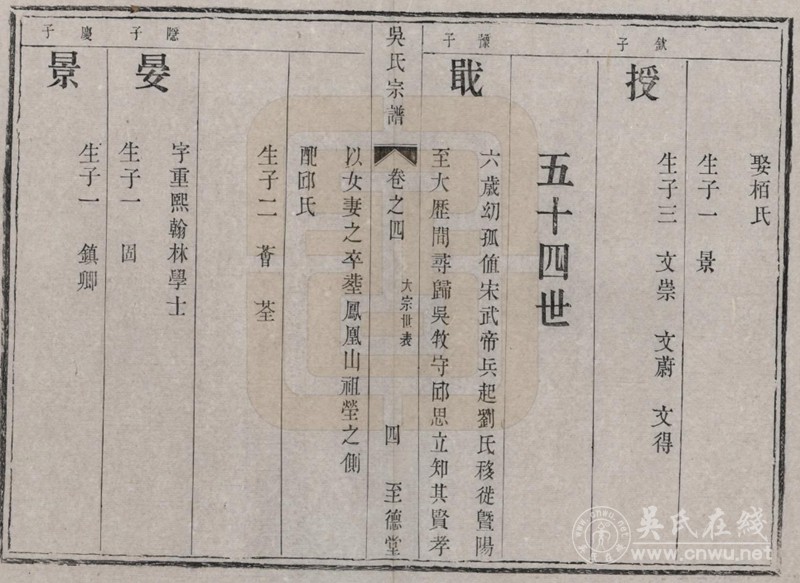 娶栢氏
生子一　景
欽子
授
生子三　文崇　文蔚　文得
五十四世
豫子
戢
六歲幼孤值宋武帝兵起劉氏移徙暨陽
至大歷間尋歸吳牧守邱思立知其賢孝
吳氏宗譜　卷之四　大宗世表　四　至德堂
以女妻之卒塟鳳凰山祖塋之側
配邱氏
生子二　薈　荃
隱子
晏
字重熙翰林學士
生子一　固
慶子
景
生子一　鎮卿
吳氏在线
www.cnwu.net